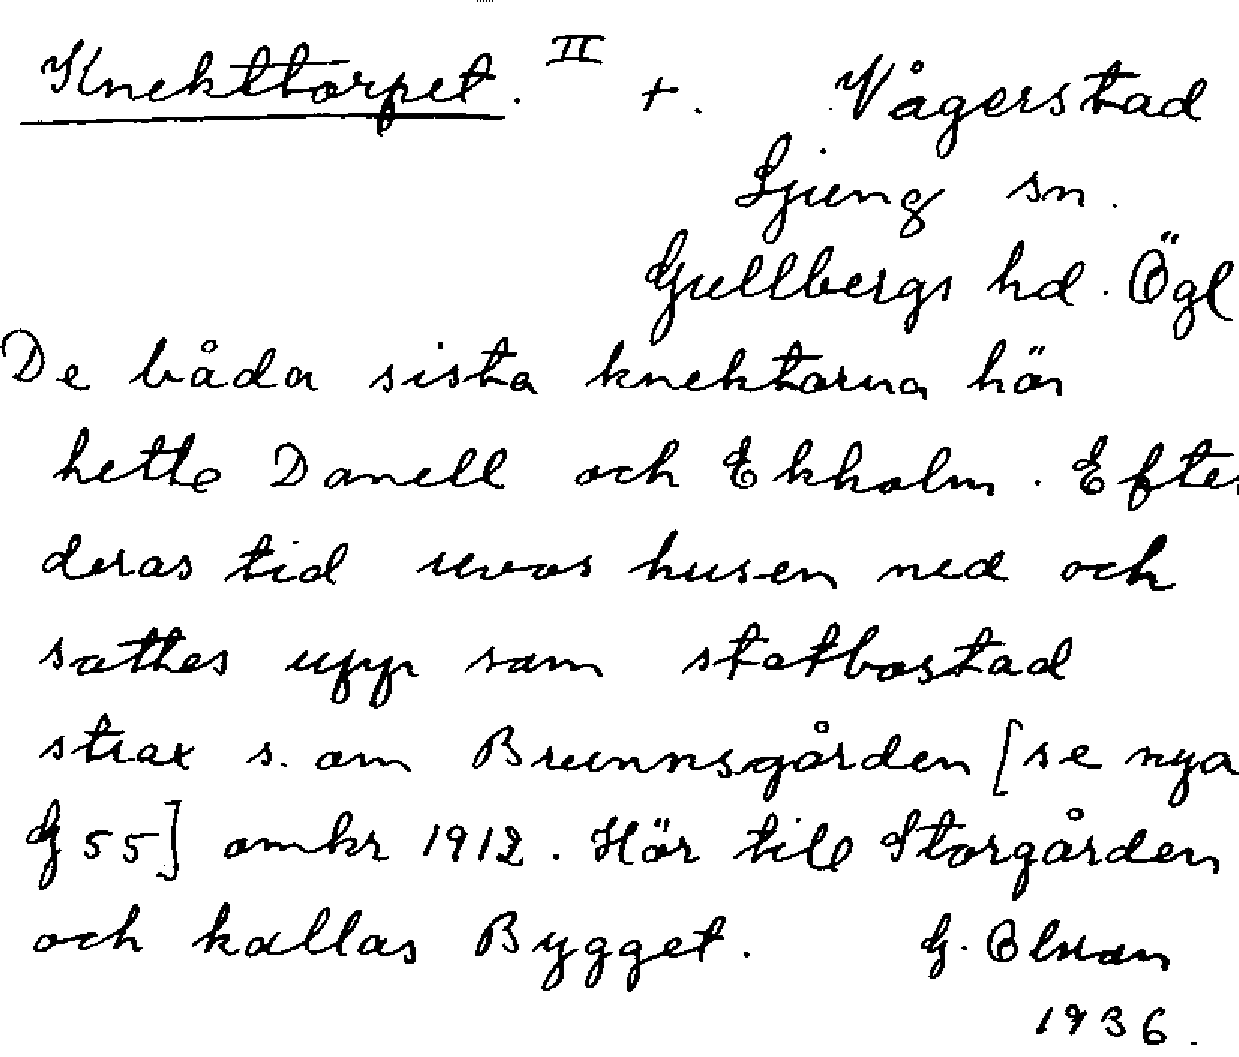 Knekttorpet. II +. Vågerstad
Ljung sn.
Gullbergs hd. Ögl
De båda sista knektarna här
hette Danell och Ekholm. Efter
deras tid revos husen ned och
sattes upp som statbostad
strax s. om Brunnsgården [se nya
G 55] omkr 1912. Hör till Storgården
och kallas Bygget. G. Olson
1936.